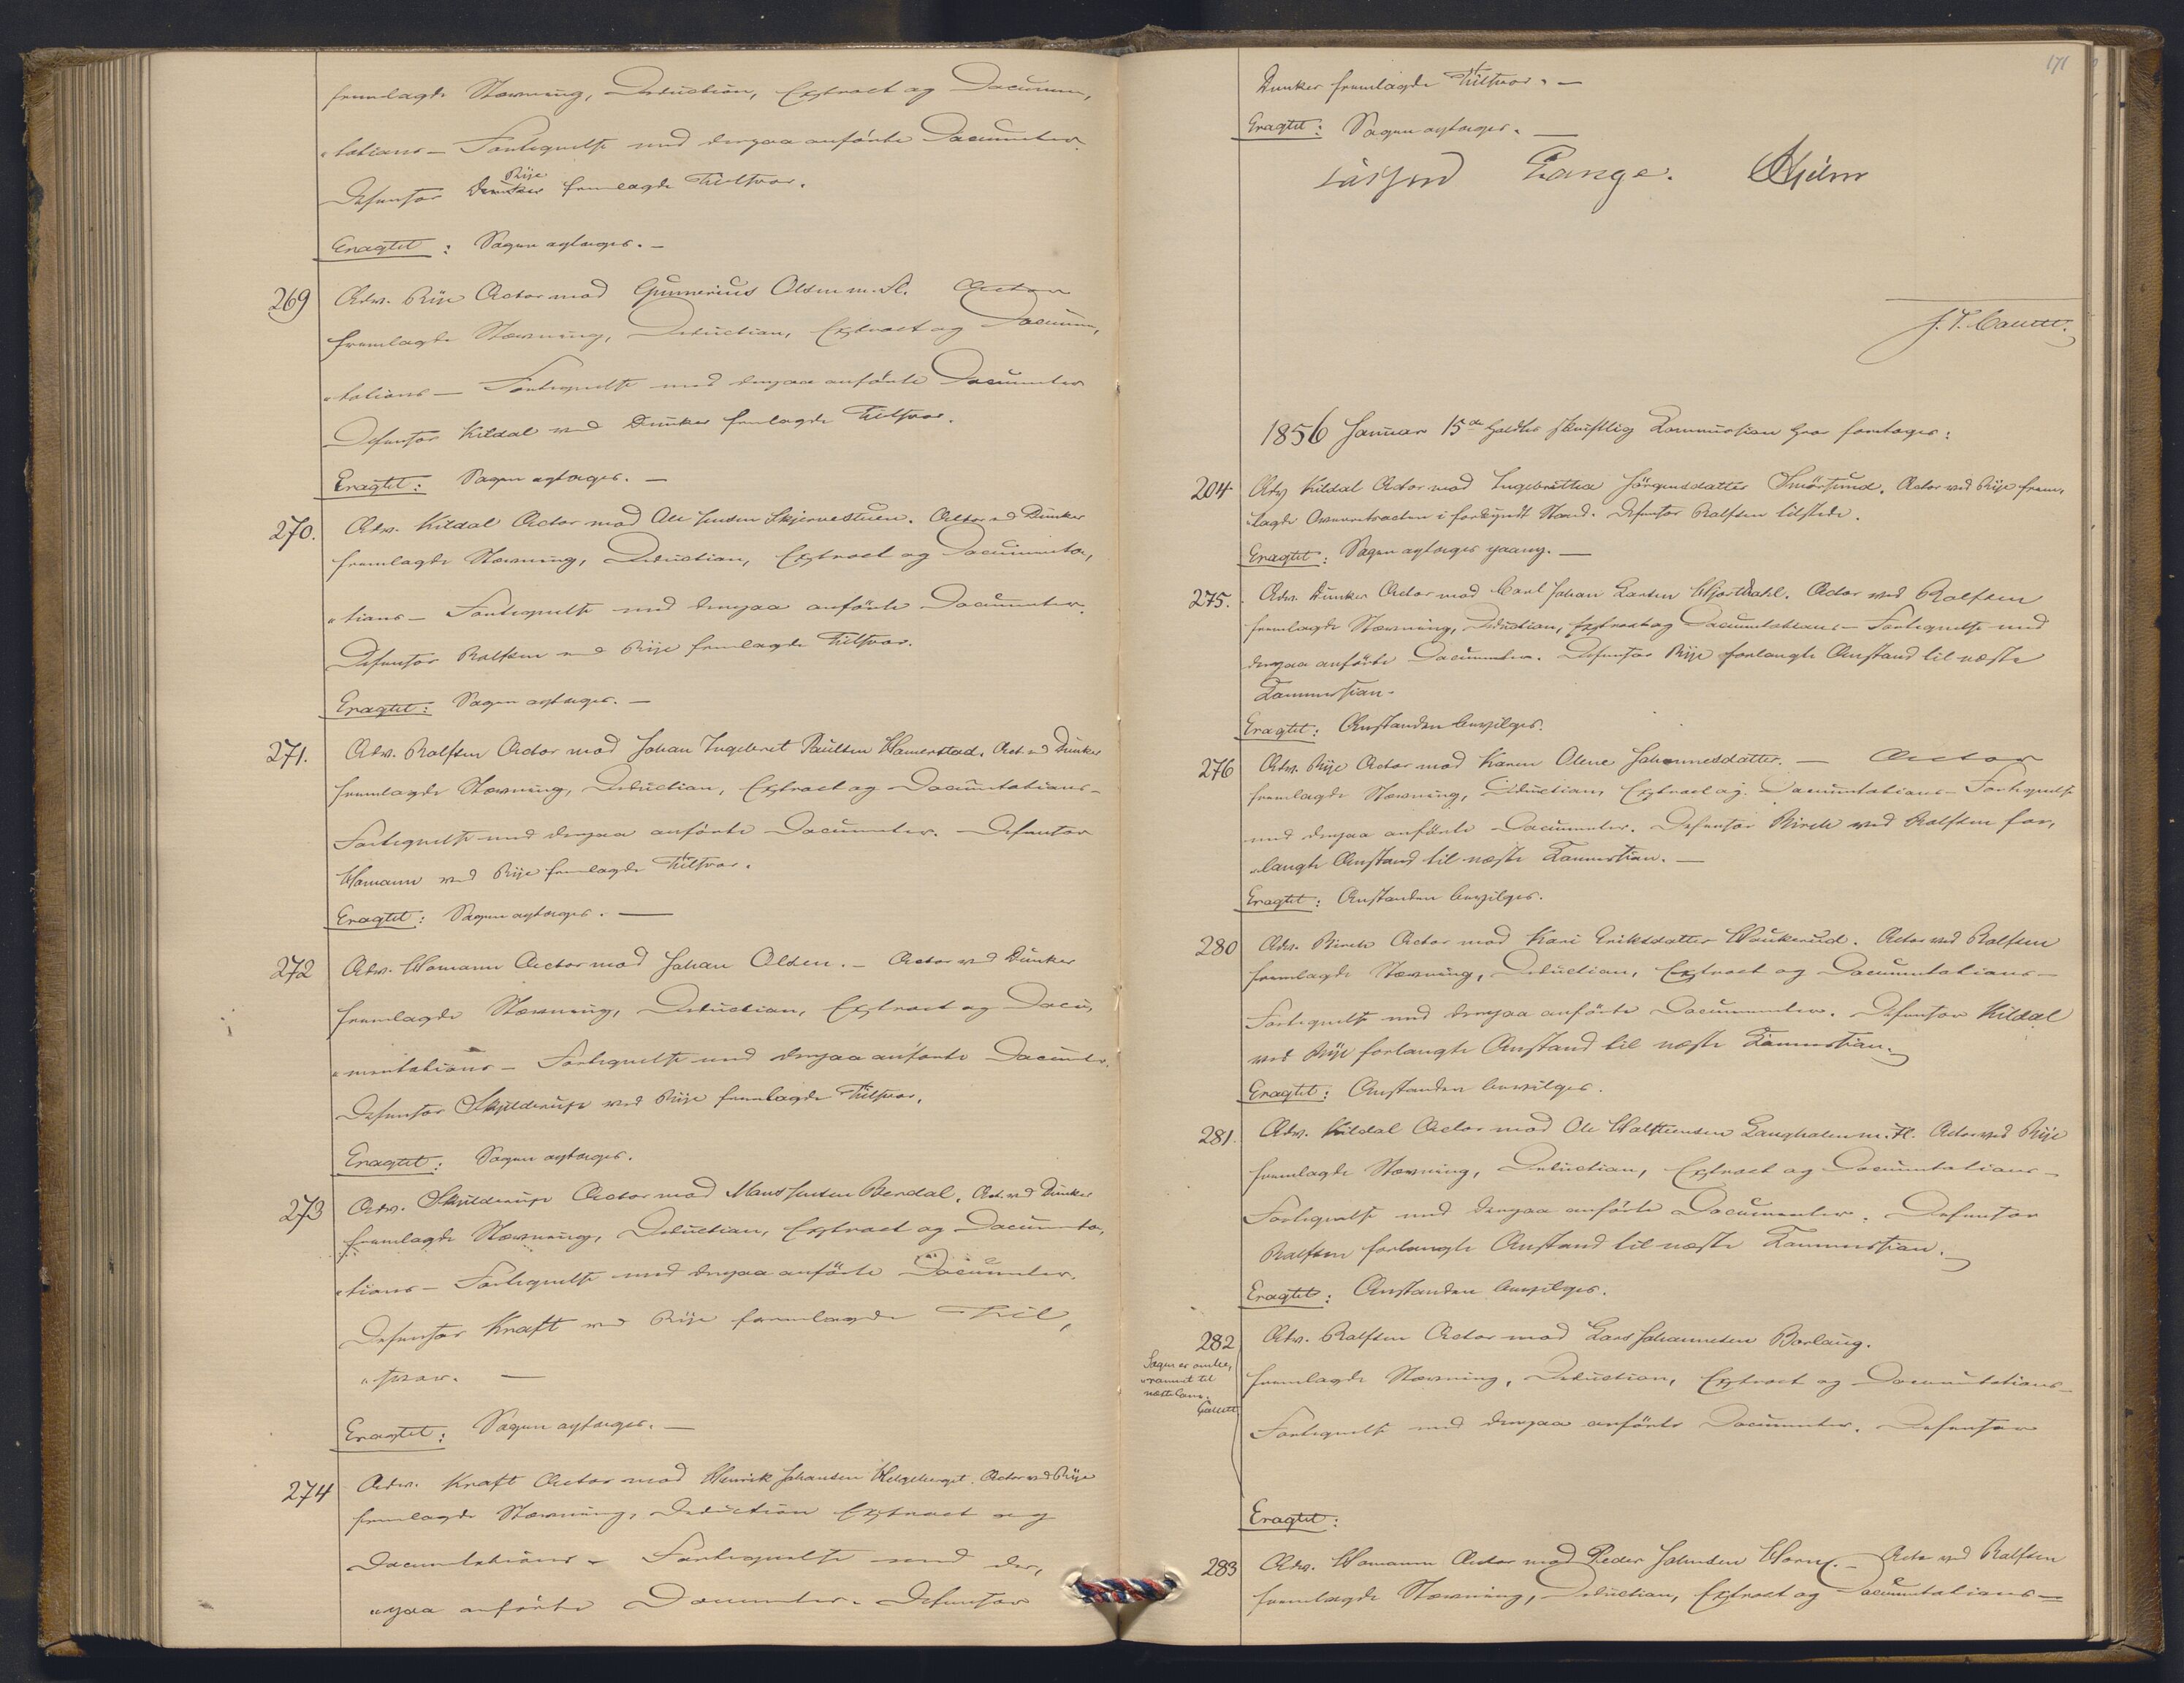 fremlagde Stævning, Deduction, Extract og Documen,
"tations- Fortegnelse med derpaa anførte Documenter.
Defensor Dunker Rije fremlagde Tilsvar.
Eragtet: Sagen optages. —
269 Adv. Rije Actor mod Gunnerius Olsen m. Fl. Actor
fremlagde Stævning, Deduction, Extract og Documen,
"tations- Fortegnelse med derpaa anførte Documenter
Defensor Kildal ved Dunker fremlagde Tilsvar.
Eragtet: Sagen optages. —
270. Adv. Kildal Actor mod Ole Jensen Skjervestuen. Actor ved Dunker
fremlagde Stævning, Deduction, Extract og Documenta,
"tions- Fortegnelse med derpaa anførte Documenter.
Defensor Rolfsen ved Rije fremlagde Tilsvar.
Eragtet: Sagen optages. —
271. Adv. Rolfsen Actor mod Johan Ingebret Paulsen Hamerstad. Act. ved Dunker
fremlagde Stævning, Deduction, Extract og Documentations-
Fortegnelse med derpaa anførte Documenter. Defensor
Homann ved Rije fremlagde Tilsvar.
Eragtet: Sagen optages. —
272 Adv. Homann Actor mod Johan Olsen. - Actor ved Dunker
fremlagde Stævning, Deduction, Extract og Docu,
"mentations- Fortegnelse med derpaa anførte Documenter.
Defensor Skjilderup ved Rije fremlagde Tilsvar.
Eragtet: Sagen optages.
273 Adv. Skjilderup Actor mod Mons Jensen Berdal. Act. ved Dunker
fremlagde Stævning, Deduction, Extract og Documenta,
"tions- Fortegnelse med derpaa anførte Documenter.
Defensor Kraft ved Rije fremlagde Til,
"svar. —
Eragtet: Sagen optages. —
274 Adv. Kraft Actor mod Henrik Johansen Helgeberget. Actor ved Rije
fremlagde Stævning, Deduction Extract og
Documentations- Fortegnelse med der,
"paa anførte Documenter. Defensor
171
Dunker fremlagde Tilsvar. —
Eragtet: Sagen optages. —
Lasson Lange. Hjelm
1856 Januar 15de holdtes skriftlig Commission hvor foretages:
204 Adv Kildal Actor mod Ingebrethea Jørgensdatter Smörsund. Actor ved Rije frem,
"lagde i forkyndt Stand. Defensor Rolfsen tilstede.
Eragtet: Sagen optages paany. —
275. Adv. Dunker Actor mod Carl Johan Larsen Hjortdahl. Actor ved Rolfsen
fremlagde Stævning, Deduction, Extract og Documentations- Fortegnelse med
derpaa anførte Documenter. Defensor Rije forlangte Anstand til næste
Commission.
Eragtet: Anstanden bevilges.
276 Adv. Rije Actor mod Karen Olene Johannesdatter. — Actor
fremlagde Stævning, Deduction, Extract og Documentations- Fortegnelse
med derpaa anførte Documenter. Defensor Birch ved Rolfsen for,
"langte Anstand til næste Commission. —
Eragtet: Anstanden bevilges.
280 Adv. Birch Actor mod Kari Eriksdatter Haukerud. Actor ved Rolfsen
fremlagde Stævning, Deduction, Extract og Documentations-
Fortegnelse med derpaa anførte Documenter. Defensor Kildal
ved Rije forlangte Anstand til næste Commission.
Eragtet: Anstanden bevilges.
281. Adv. Kildal Actor mod Ole Halstensen m. Fl. Actor ved Rije
fremlagde Stævning, Deduction, Extract og Documentations-
Fortegnelse med derpaa anførte Documenter. Defensor
Rolfsen forlangte Anstand til næste Commission.
Eragtet: Anstanden bevilges.
282 Adv. Rolfsen Actor mod Lars Johannesen Borlaug.
Sagen er ombe,
"rammet til
næste Com.
fremlagde Stævning, Deduction, Extract og Documentations-
Fortegnelse med derpaa anførte Documenter. Defensor
Eragtet:
283 Adv. Homann Actor mod Peder Johnsen Horne. - Actor ved Rolfsen
fremlagde Stævning, Deduction, Extract og Documentations-